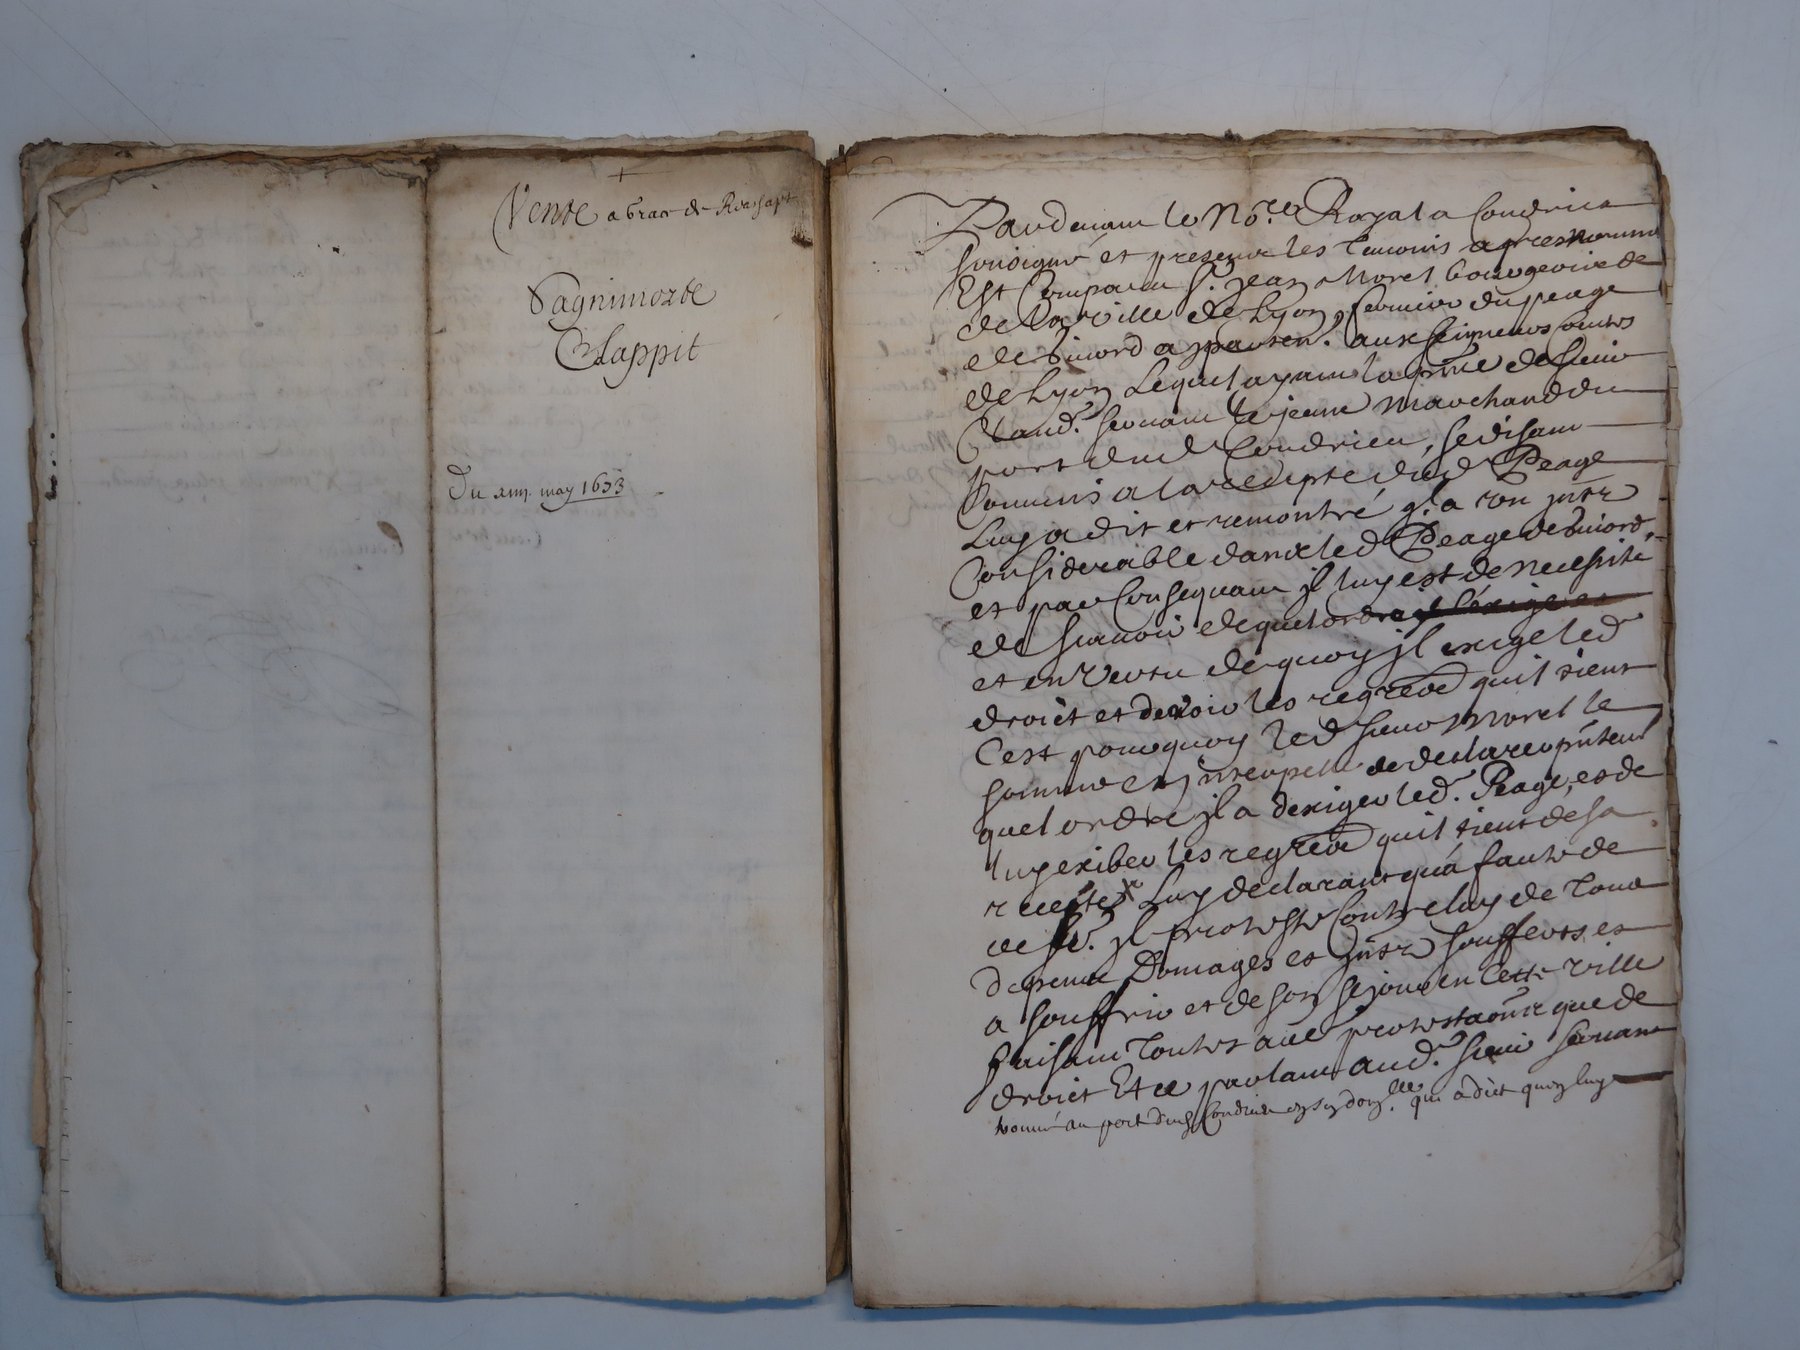 Vente a grace de Reachapt
Pagnimorte
Clappit
Du xiiij. may 1653
Pardevant le No.re Royal a Condrieu
soubsigné et presence les temoins apres nommés
Est Comparu Sr. Jean Morel bourgeois de
de la ville de Lyon, fermier du peage
de Givord apparten. aux seigneurs Comtes
de Lyon Lequel ayant la pñce de sieur
Claud. Servant le jeune Marchand du
port dud Condrieu, se disant
Commis a la recepte dud Peage
Luy a dit et remontré q.l a un jnter
Considerable dans led Peage de Givord,
et par Consequant jl luy est de necessité
de scavoir de quel ordre
et en vertu de quoy jl exige led
droict et devoir les regrede quil tient
Cest pourquoy led sieur Morel le
somme et jnterpelle de declarer pñtem
quel ordre jl a dexiger led. Peage, et de
luy exiber les regrede quil tient de sa
recepte Luy declarant qua faute de
ce fe. jl proteste Contre luy de Tous
depens Domages et jnter soufferts et
a souffrir et de son sejour en Cette ville
faisant Toutes aue protestaõns que de
droict Et ce parlant aud. sieur Servant
trouvé au port dud Condrieu en son dom.lle qui a dict quoy luy